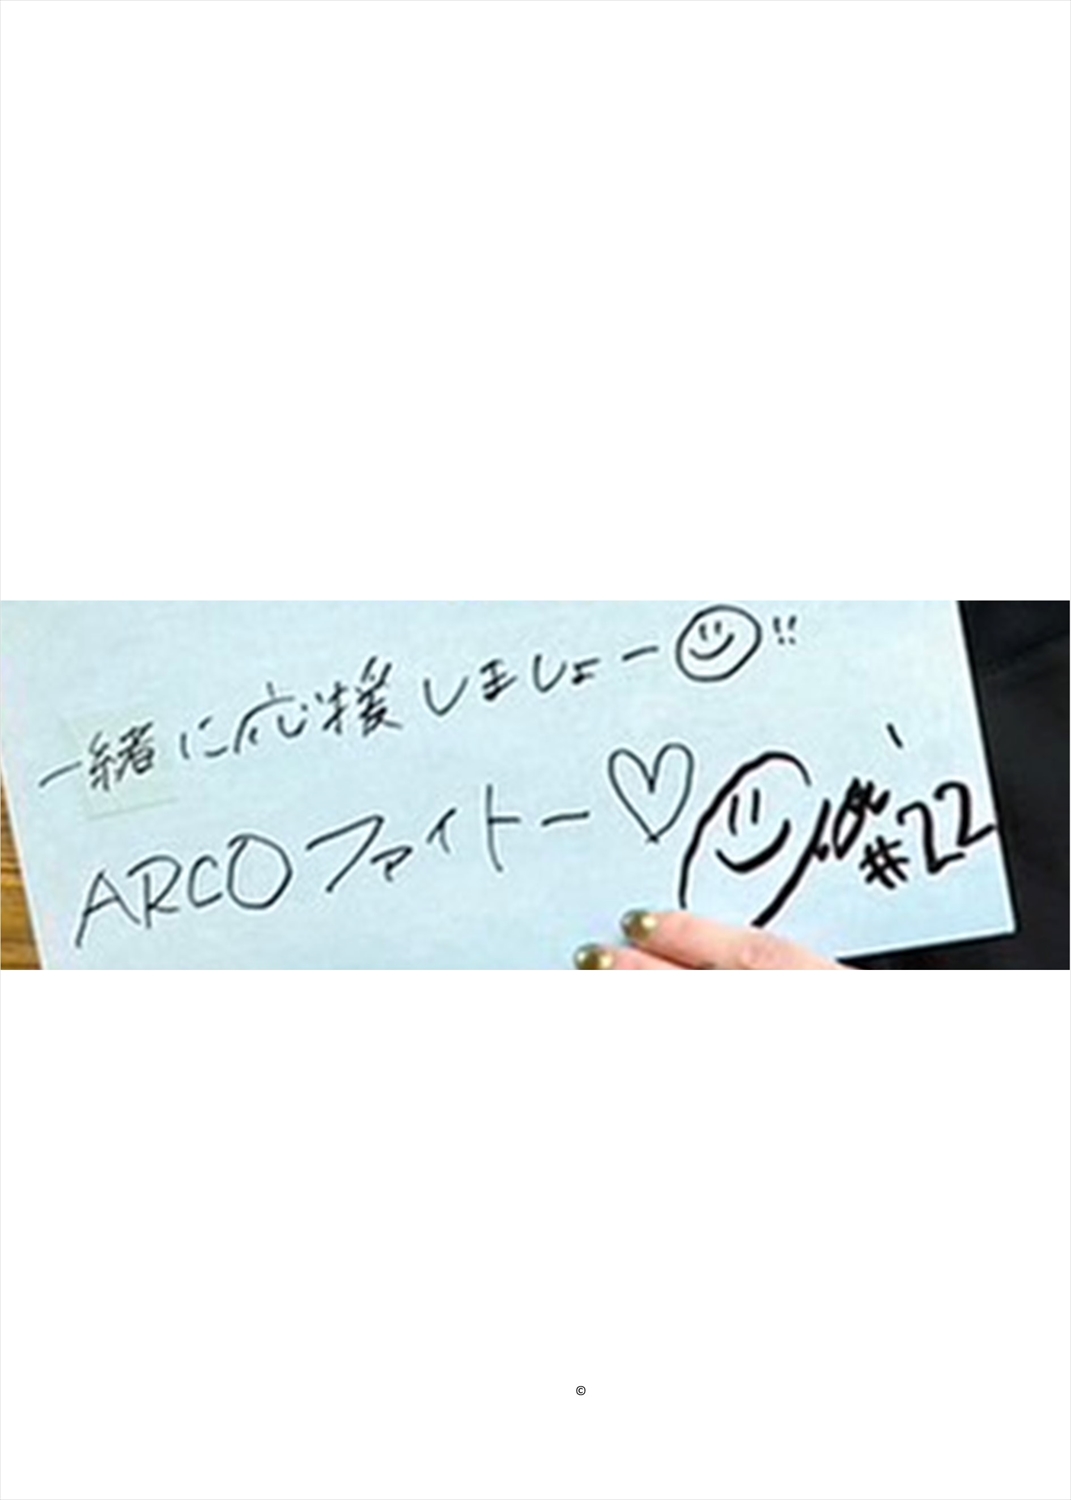 一緒に応援しましょー!!
ARCOファイトー♡
#22
©